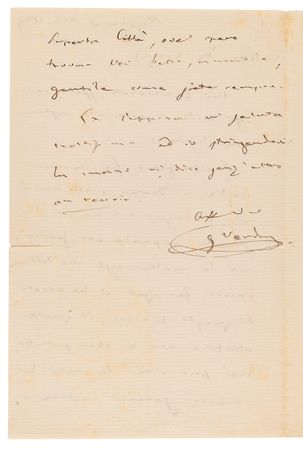 Superba Città, ove spero
trovar Voi bella, amabile,
gentile come siete sempre.
La Peppina vi saluta
ed io stringendovi
la mano vi dico senz'altro
au revoir
Aff
G Verdi